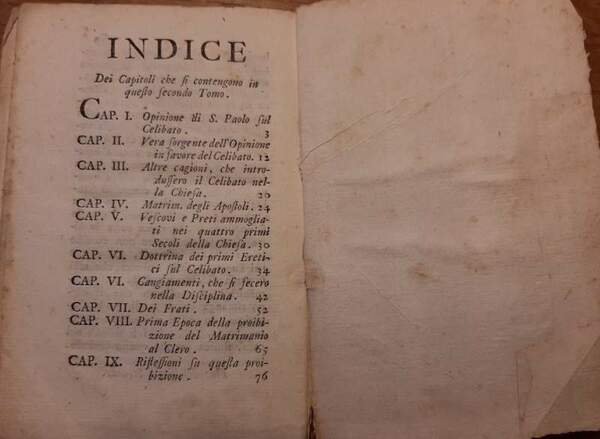 INDICE
Dei Capitoli che ſi contengono in
queſto ſecondo Tomo.
CAP. I. Opinione di S. Paolo ſul
Celibato. 3
CAP. II. Vera ſorgente dell'Opinione
in favore del Celibato. 12
CAP. III. Altre cagioni, che intro-
duſſero il Celibato nel-
la Chieſa. 20
CAP. IV. Matrim. degli Apoſtoli. 24
CAP. V. Veſcovi e Preti ammoglia-
ti nei quattro primi
Secoli della Chieſa. 30
CAP. VI. Dottrina dei primi Ereti-
ci ſul Celibato. 34
CAP. VI. Cangiamenti, che ſi fecero
nella Diſciplina. 42
CAP. VII. Dei Frati. 52
CAP. VIII. Prima Epoca della proibi-
zione del Matrimanio
al Clero. 65
CAP. IX. Rifleſſioni ſu queſta proi-
bizione. 76